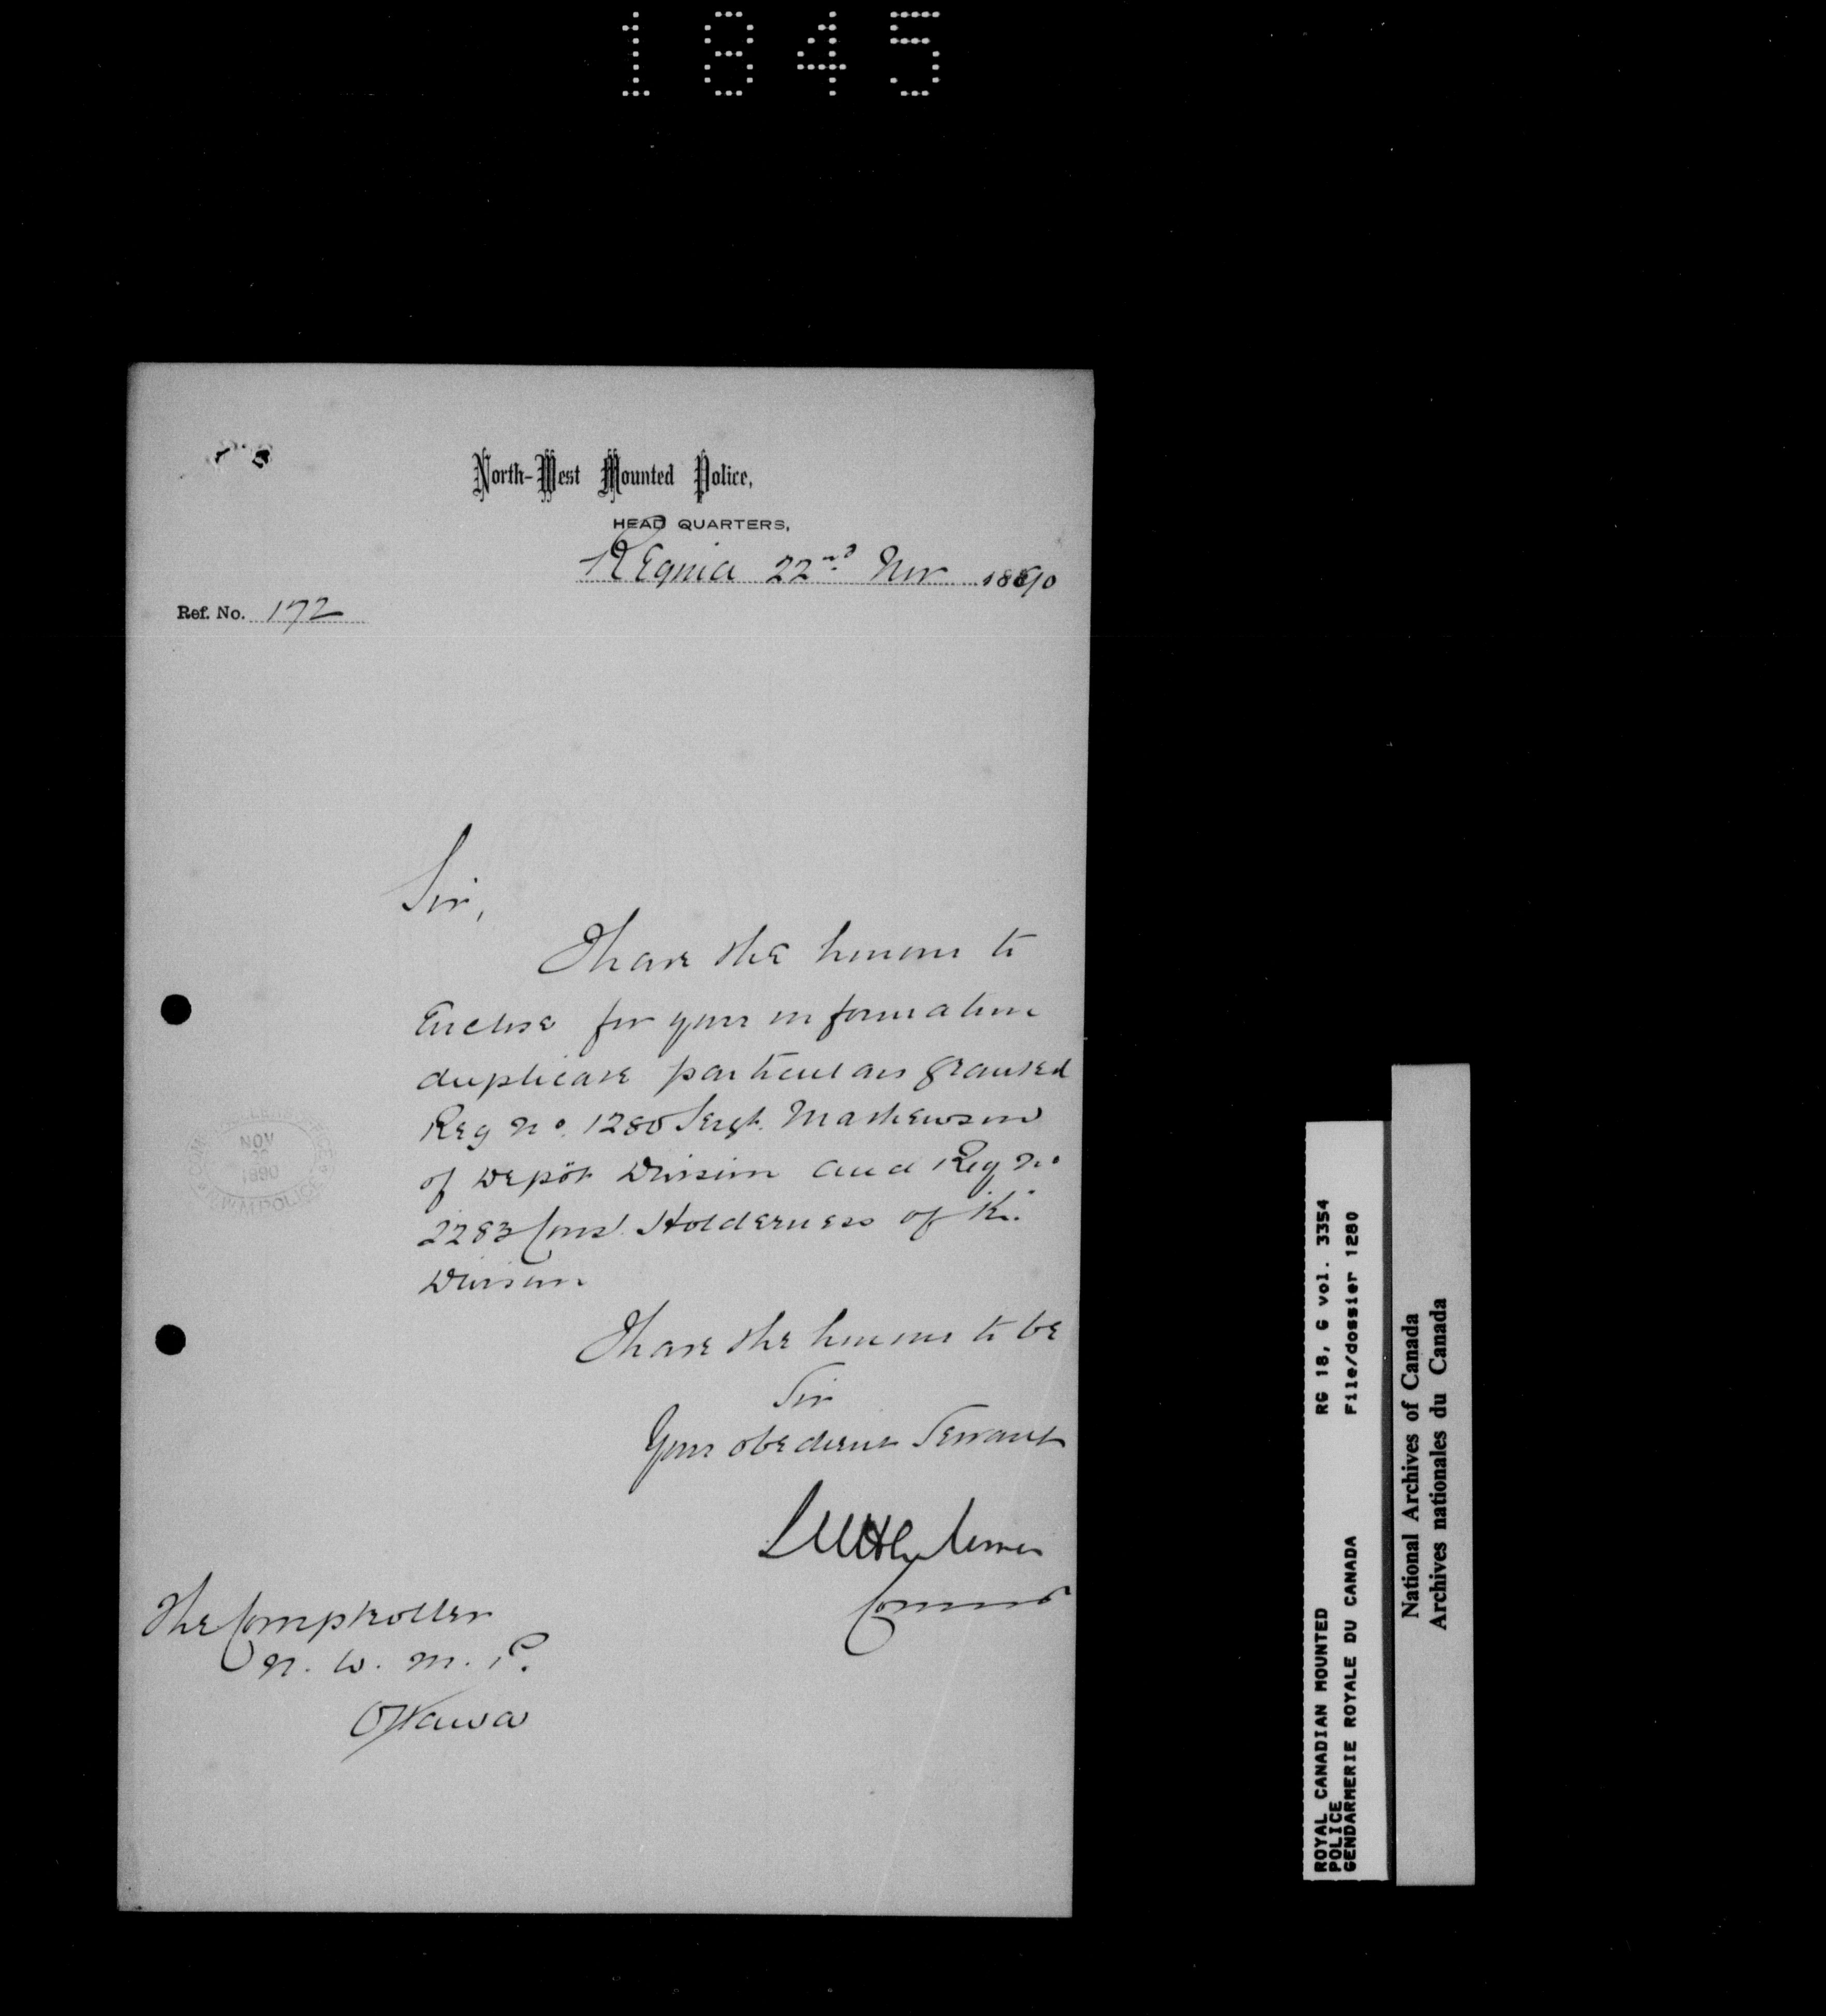 1845
North-West Mounted Police,
HEAD QUARTERS,
Regina 22nd Nov 1890
Ref. No. 172
Sir,
I have the honour to
Enclose for your information
duplicate particulars granted
Reg No. 1280 Sergt. Mathewson
of Depôt Division and Reg No
2283 Const Holderness of "K"
Division
I have the honour to be
Sir
Your obedient Servant
Commr
The Comptroller
N. W. M. P.
Ottawa
NOV
1890
N.W.M.POLICE
ROYAL CANADIAN MOUNTED RG 18, G vol. 3354
POLICE
GENDARMERIE ROYALE DU CANADA File/dossier 1280
National Archives of Canada
Archives nationales du Canada